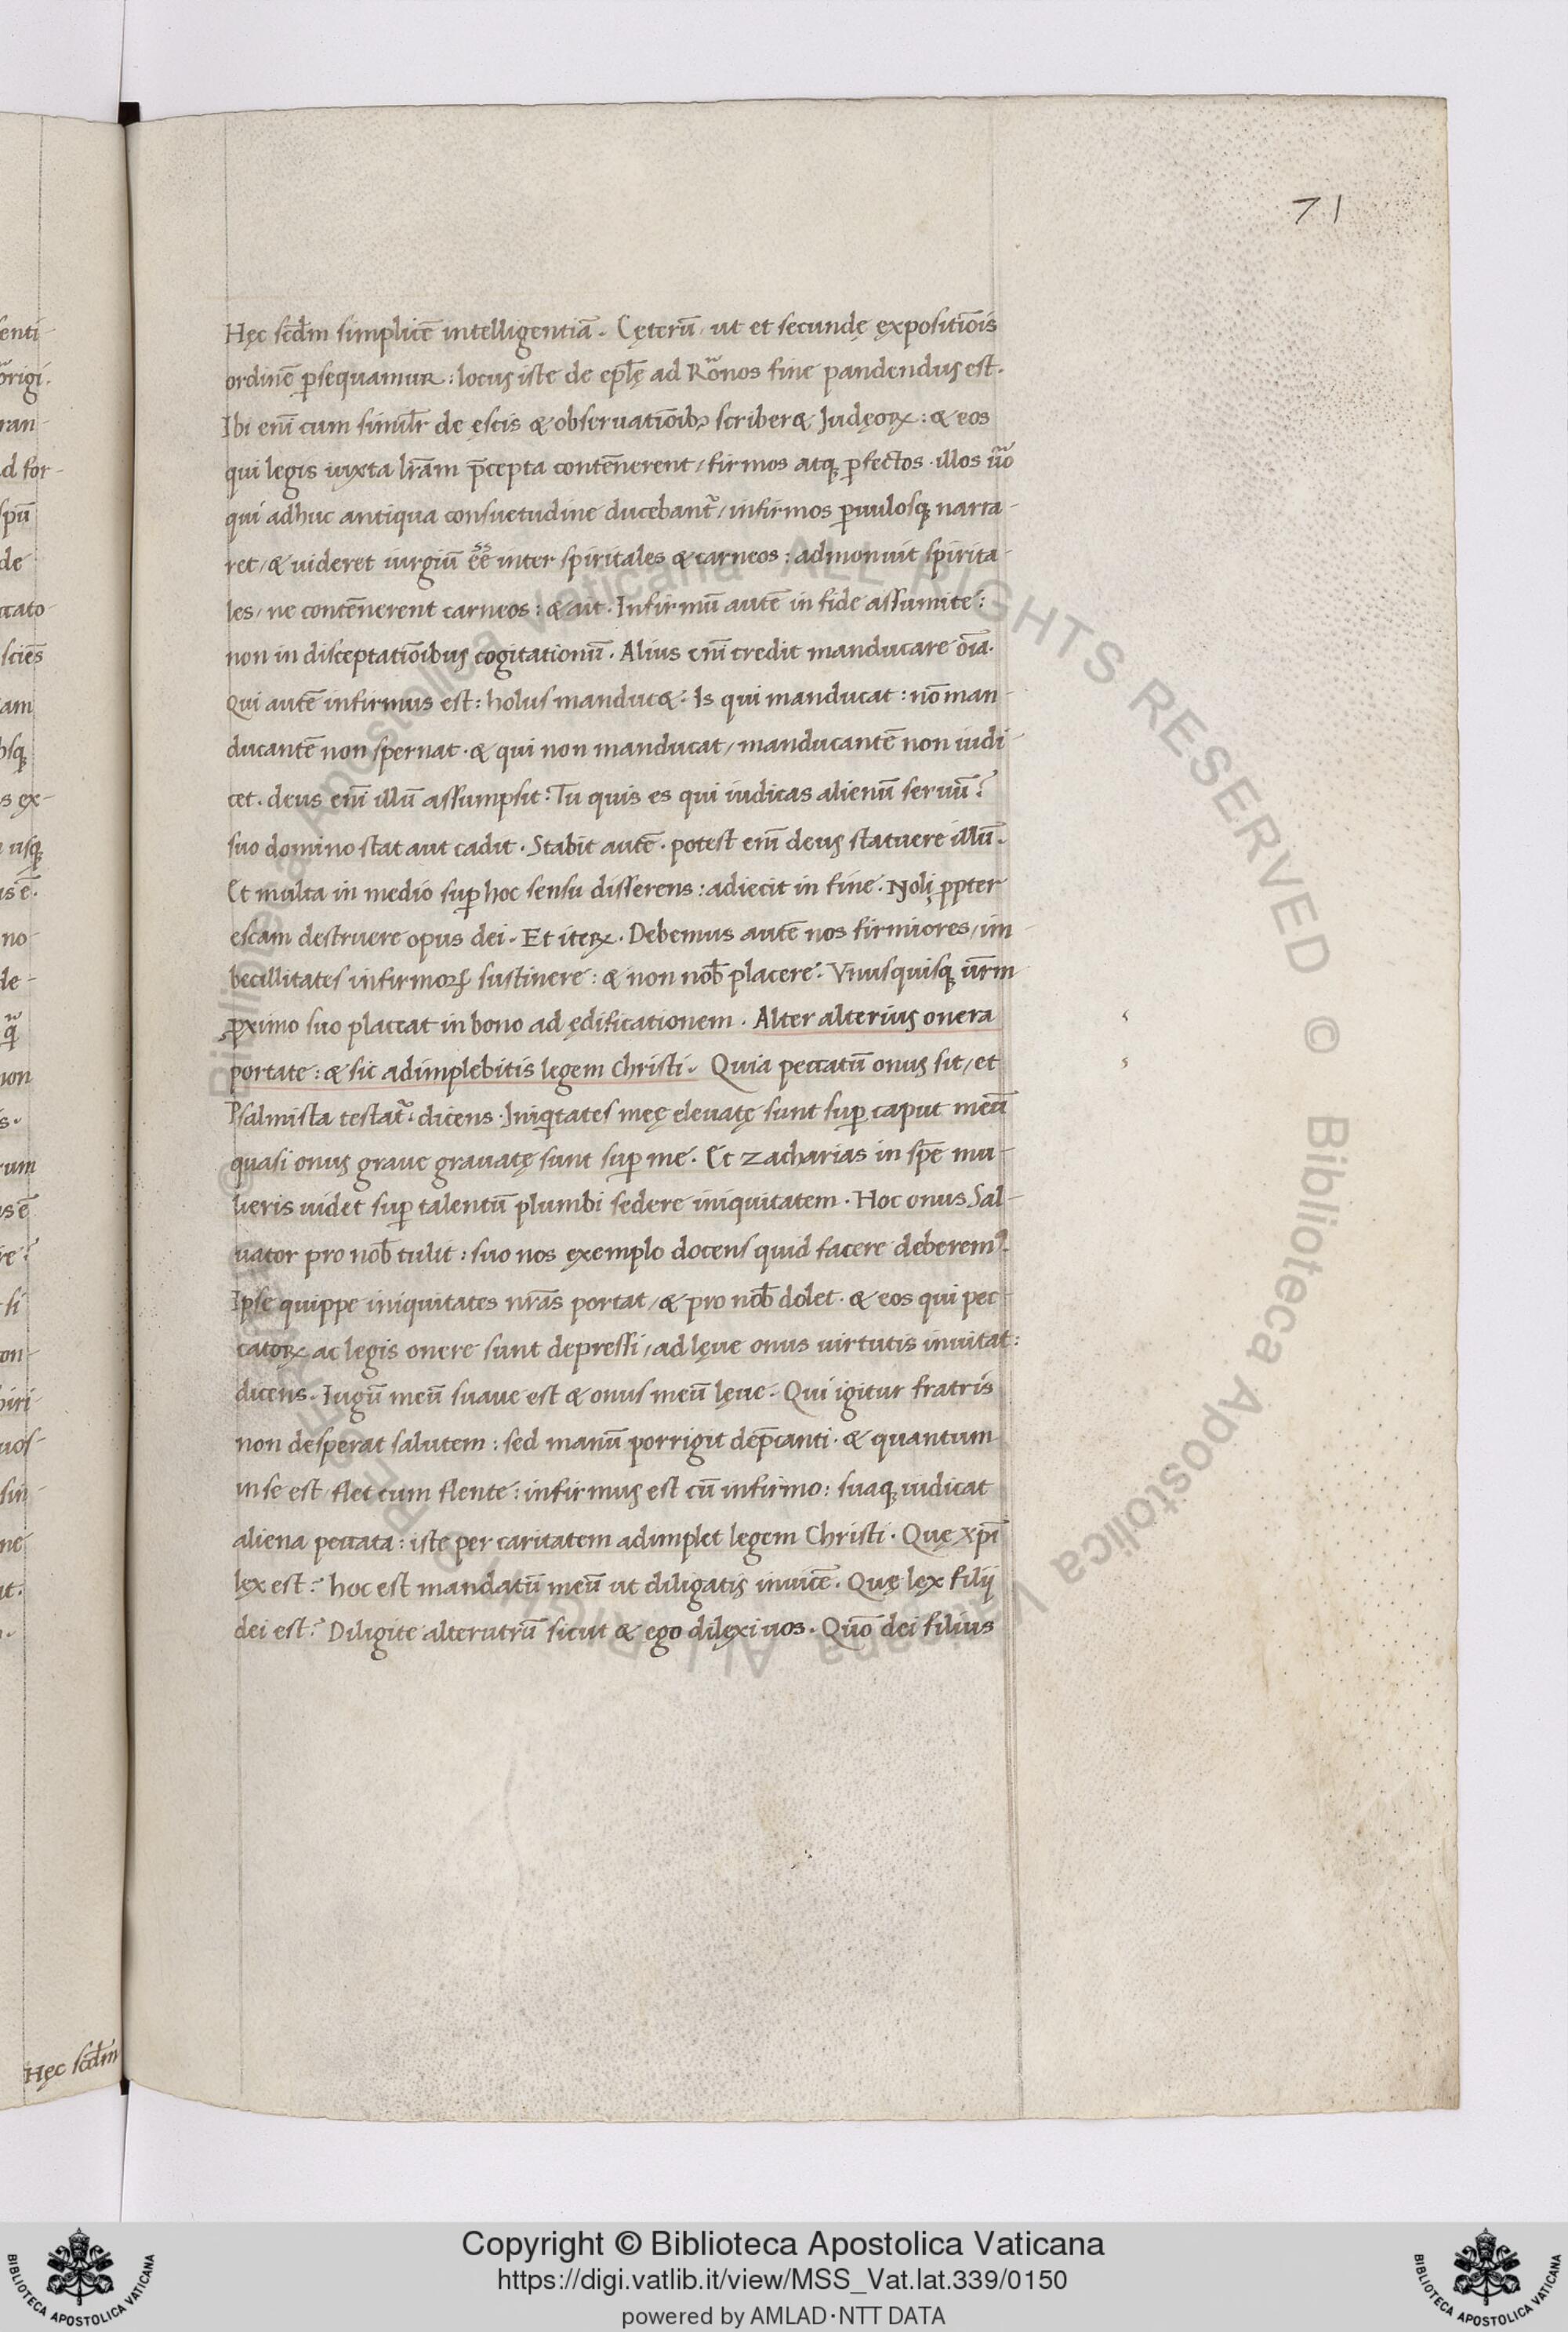 71
Hęc scd̄m simplicē intelligentiā. Cęterū, ut et secundę expositiōis
ordinē ꝑsequamur: locus iste de epl̄ę ad Rōnos fine pandendus est.
Ibi enī cum simil̄r de ęscis & obseruatiōib; scriber& Judęoꝝ: & eos
qui legis iuxta lr̄am p̄cepta contēnerent, firmos atq; ꝑfectos. illos u̅o
qui adhuc antiqua consuetudine ducebant̄, infirmos ꝑuulosq; narra-
ret, & uideret iurgiū ēē inter spiritales & carneos: admonuit spirita-
les, ne contēnerent carneos: & ait. Infirmū autē in fide assumite:
non in disceptatiōibus cogitationū. Alius enī credit manducare oīa.
Qui autē infirmus est: holus manduc&. Is qui manducat: nō man-
ducantē non spernat. & qui non manducat, manducantē non iudi-
cet. deus enī illū assumpsit: Tu quis es qui iudicas alienū seruū?
suo domino stat aut cadit. Stabit autē. potest enī deus statuere illū.
Et multa in medio suꝑ hoc sensu disserens: adiecit in fine. Noli ꝓpter
escam destruere opus dei. Et iteꝝ. Debemus autē nos firmiores, im-
becillitates infirmoꝝ sustinere: & non nob̄ placere. Vnusquisq; ur̄m
ꝓximo suo placeat in bono ad ędificationem. Alter alterius onera
portate: & sic adimplebitis legem Christi. Quia peccatū onus sit, et
Psalmista testat̄ dicens. Iniqtates meę eleuatę sunt suꝑ caput meū
quasi onus graue grauatę sunt suꝑ me. Et Zacharias in sp̄e mu-
lieris uidet suꝑ talentū plumbi sedere iniquitatem. Hoc onus Sal-
uator pro nob̄ tulit: suo nos exemplo docens quid facere deberemꝰ.
Ipse quippe iniquitates nr̄as portat, & pro nob̄ dolet. & eos qui pec-
catoꝝ ac legis onere sunt depressi, ad lęue onus uirtutis inuitat:
dicens. Iugū meū suaue est & onus meū lęue. Qui igitur fratris
non desperat salutem: sed manū porrigit dep̄canti. & quantum
in se est, flet cum flente: infirmus est cū infirmo: suaq; iudicat
aliena peccata: iste per caritatem adimplet legem Christi. Quę xp̄i
lex est? hoc est mandatū meū ut diligatis inuicē. Quę lex filij
dei est? Diligite alterutrū sicut & ego dilexi uos. Quō dei filius
Hęc scd̄m
Copyright © Biblioteca Apostolica Vaticana
https://digi.vatlib.it/view/MSS_Vat.lat.339/0150
powered by AMLAD·NTT DATA